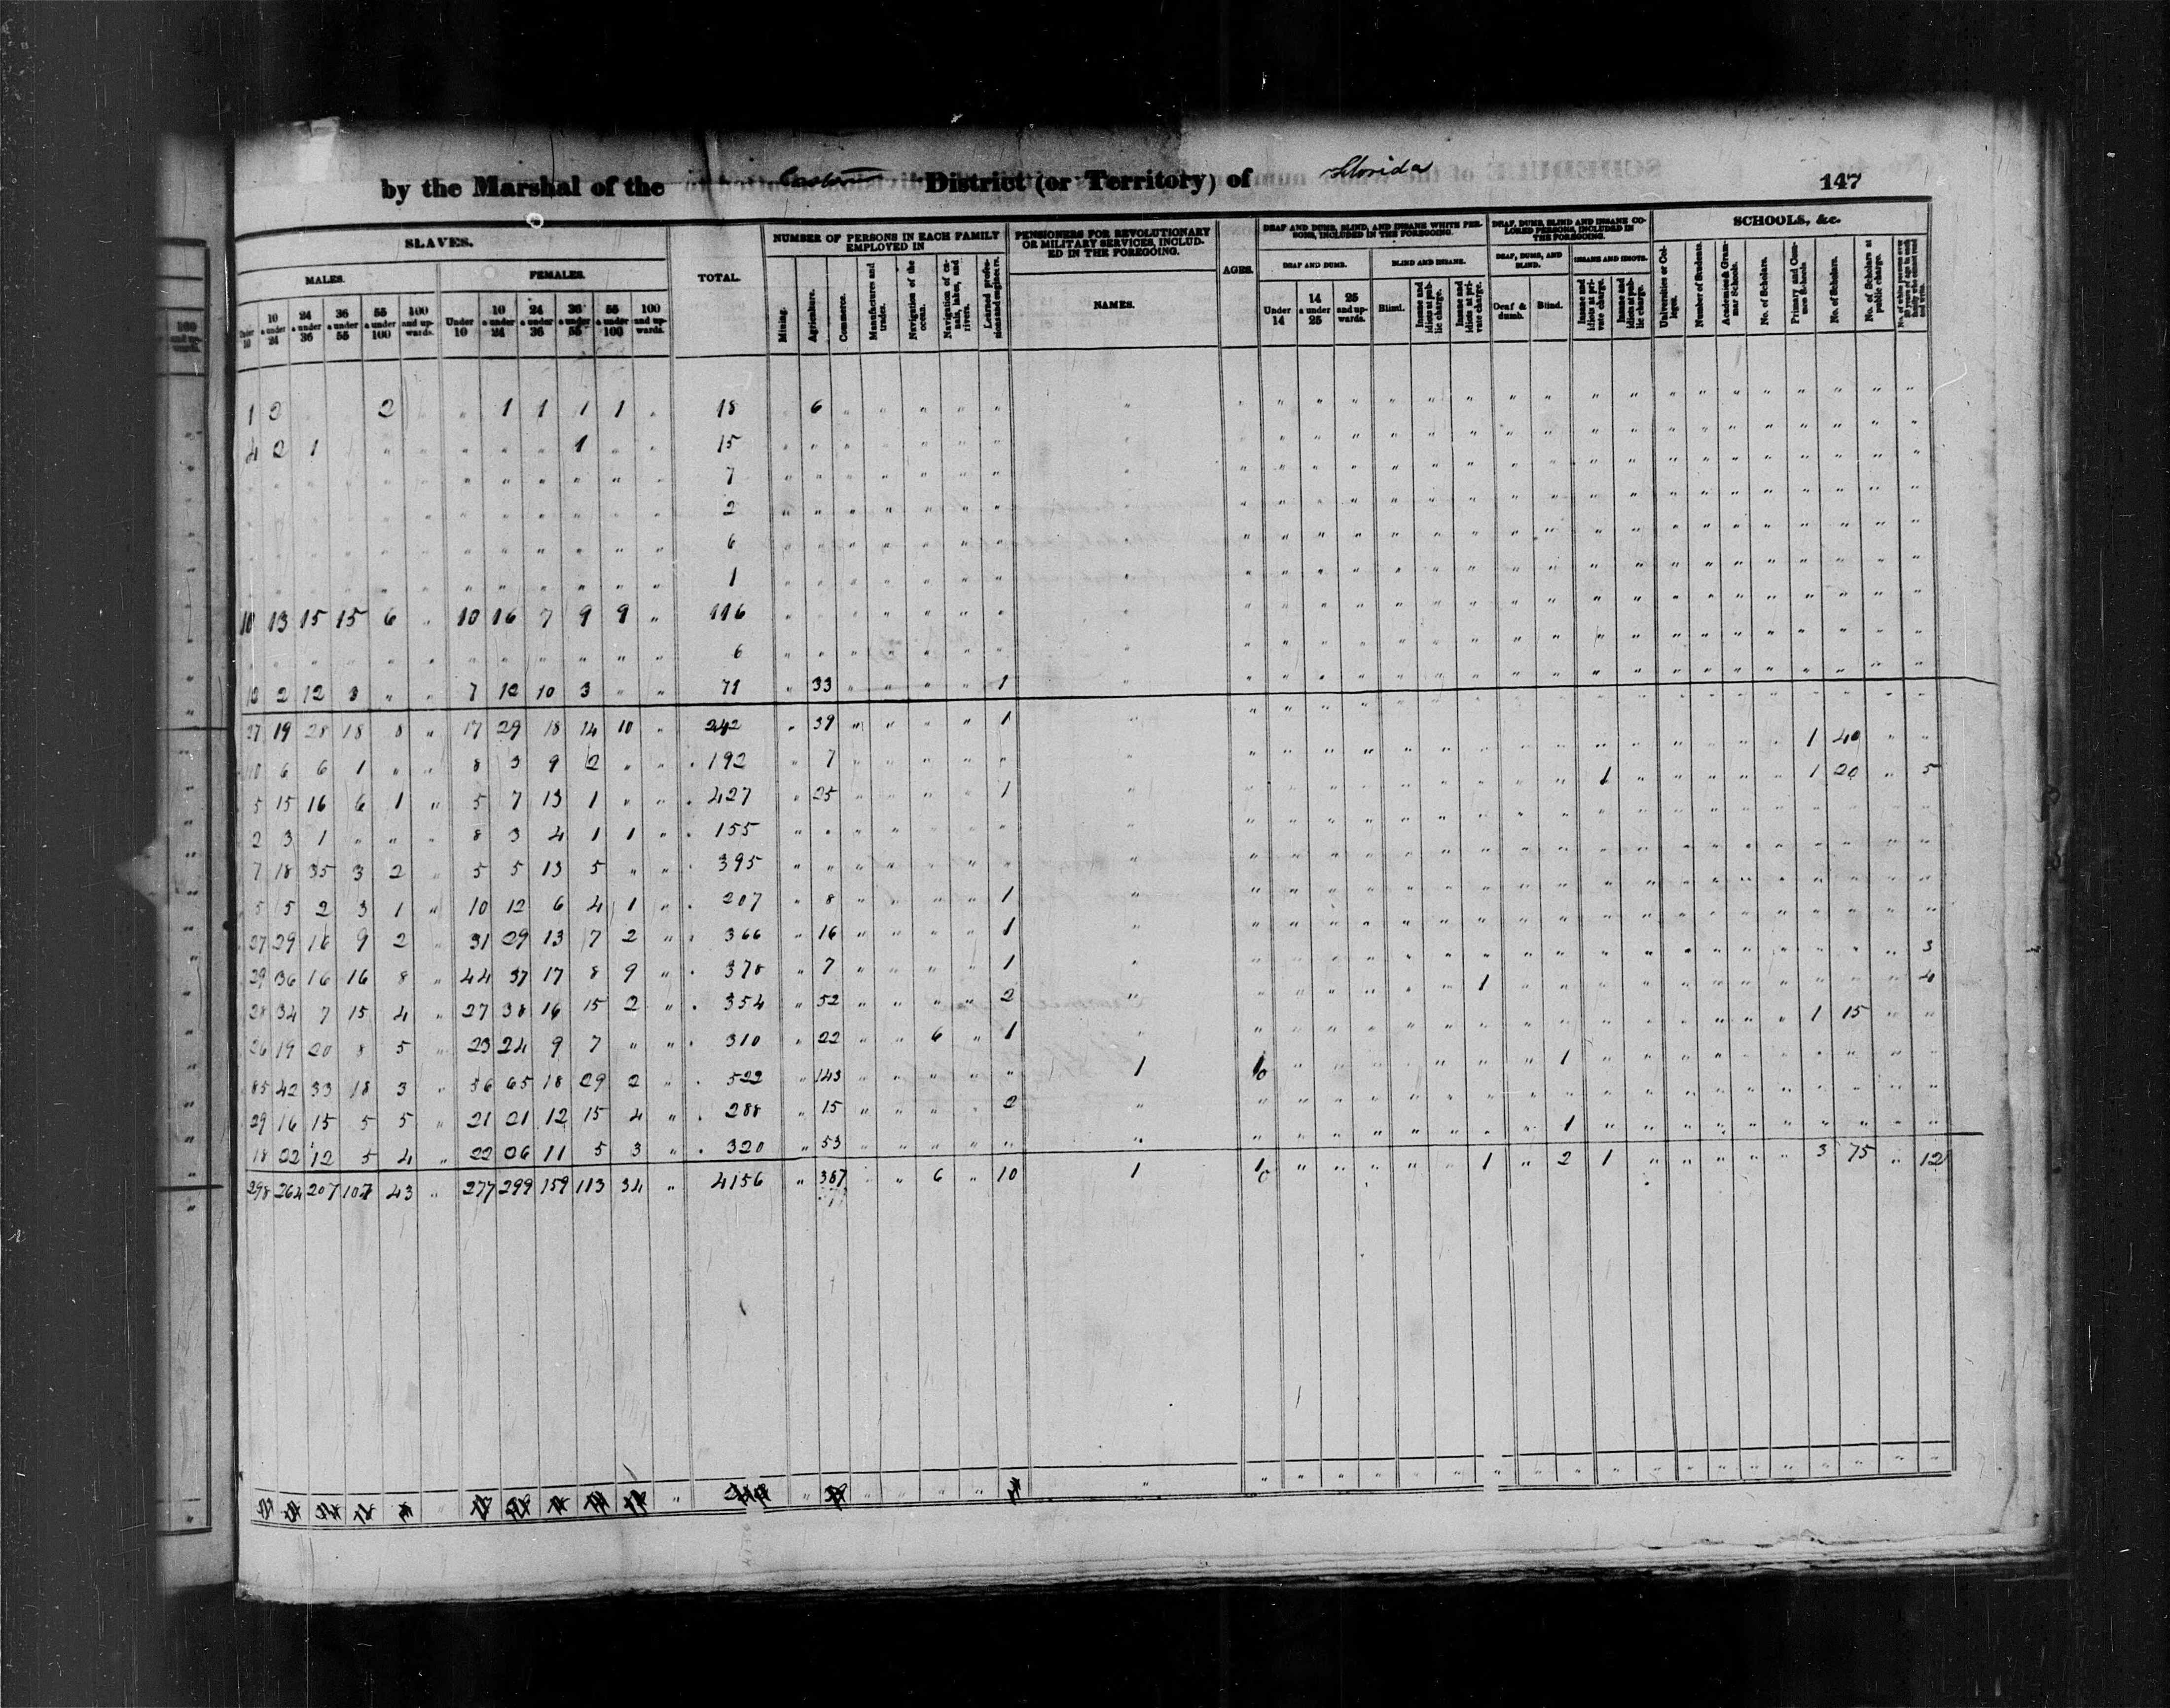 by the Marshal of the Eastern District (or Territory) of Florida 147
SLAVES. TOTAL. NUMBER OF PERSONS IN EACH FAMILY EMPLOYED IN PENSIONERS FOR REVOLUTIONARY OR MILITARY SERVICES, INCLUDED IN THE FOREGOING. AGES. DEAF AND DUMB, BLIND, AND INSANE WHITE PERSONS, INCLUDED IN THE FOREGOING. DEAF, DUMB, BLIND AND INSANE COLORED PERSONS, INCLUDED IN THE FOREGOING. SCHOOLS, &c.
MALES. FEMALES. NAMES. DEAF AND DUMB. BLIND AND INSANE. DEAF, DUMB, AND BLIND. INSANE AND IDIOTS.
Under 10 10 & under 24 24 & under 36 36 & under 55 55 & under 100 100 and upwards. Under 10 10 & under 24 24 & under 36 36 & under 55 55 & under 100 100 and upwards. Mining. Agriculture. Commerce. Manufactures and trades. Navigation of the ocean. Navigation of canals, lakes, and rivers. Learned professions and engineers. Under 14 14 & under 25 25 and upwards. Blind. Insane and idiots at public charge. Insane and idiots at private charge. Deaf & dumb. Blind. Insane and idiots at private charge. Insane and idiots at public charge. Universities or Colleges. Number of Students. Academies & Grammar Schools. No. of Scholars. Primary and Common Schools No. of Scholars. No. of Scholars at public charge. No. of white persons over 20 years of age in each family who cannot read and write.
1 2 2 " " 1 1 1 1 " 18 6 " " " " "
4 2 1 " " " " " 1 " " 15 " " " " " " "
7
2
6
1
10 13 15 15 6 " 10 16 7 9 9 " 116
6
10 2 12 3 " " 7 12 10 3 " " 71 " 33 " " " " 1
27 19 28 18 8 " 17 29 18 14 10 " 242 " 39 " " " " 1 1 40 " "
10 6 6 1 " " 8 3 9 2 " " 192 " 7 " " " " " 1 1 20 " 5
5 15 16 6 1 " 5 7 13 1 " " 427 " 25 " " " " 1
2 3 1 " " " 8 3 4 1 1 " 155
7 18 35 3 2 " 5 5 13 5 " " 395
5 5 2 3 1 " 10 12 6 4 1 " 207 " 8 " " " " 1
27 29 16 9 2 " 31 29 13 7 2 " 366 " 16 " " " " 1 3
29 36 16 16 8 " 44 37 17 8 9 " 378 " 7 " " " " 1 1 4
28 34 7 15 4 " 27 38 16 15 2 " 354 " 52 " " " " 2 1 15 " "
26 19 20 8 5 " 23 24 9 7 " " 310 " 22 " " 6 " 1 1
85 42 33 18 3 " 56 65 18 29 2 " 522 " 143 " " " " " 1
29 16 15 5 5 " 21 21 12 15 4 " 288 " 15 " " " " 2 1
18 22 12 5 4 " 22 26 11 5 3 " 320 " 53 " " " " "
298 264 207 107 43 " 277 299 159 113 34 " 4156 " 387 " " 6 " 10 1 1 " 2 1 3 75 " 12